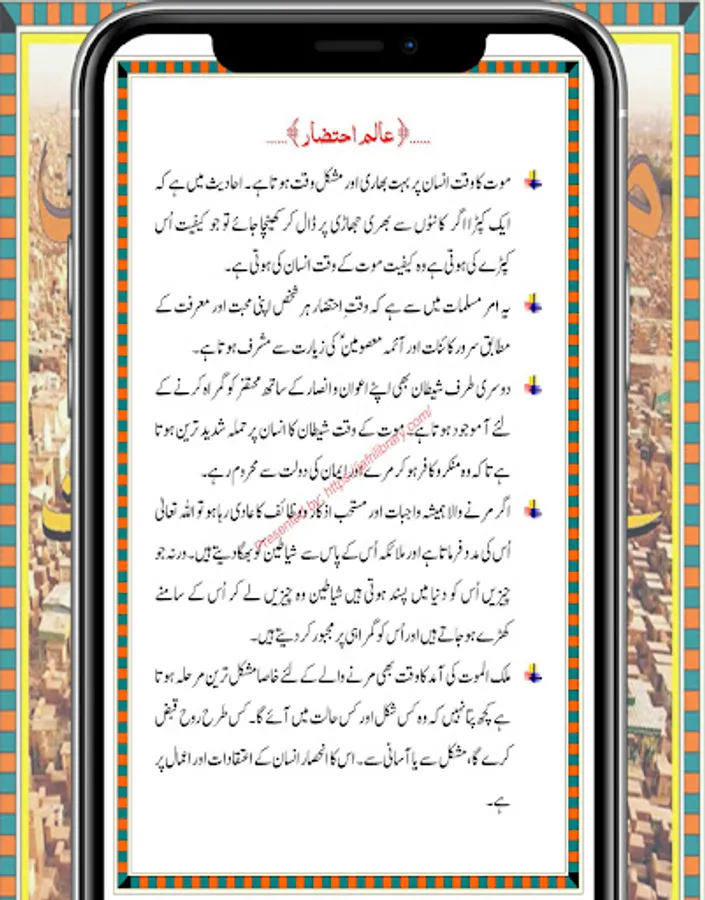 ......﴿عالم احتضار﴾......
موت کا وقت انسان پر بہت بھاری اور مشکل وقت ہوتا ہے۔ احادیث میں ہے کہ
ایک کپڑا اگر کانٹوں سے بھری جھاڑی پر ڈال کر کھینچا جائے تو جو کیفیت اُس
کپڑے کی ہوتی ہے وہ کیفیت موت کے وقت انسان کی ہوتی ہے۔
یہ امر مسلمات میں سے ہے کہ وقتِ احتضار ہر شخص اپنی محبت اور معرفت کے
مطابق سرور کائنات اور آئمہ معصومینؑ کی زیارت سے مشرف ہوتا ہے۔
دوسری طرف شیطان بھی اپنے اعوان و انصار کے ساتھ محتضر کو گمراہ کرنے کے
لئے آ موجود ہوتا ہے۔ موت کے وقت شیطان کا انسان پر حملہ شدید ترین ہوتا
ہے تا کہ وہ منکر و کافر ہو کر مرے اور ایمان کی دولت سے محروم رہے۔
اگر مرنے والا ہمیشہ واجبات اور مستحب اذکار و وظائف کا عادی رہا ہو تو اللہ تعالیٰ
اُس کی مدد فرماتا ہے اور ملائکہ اُس کے پاس سے شیاطین کو بھگا دیتے ہیں۔ ورنہ جو
چیزیں اُس کو دنیا میں پسند ہوتی ہیں شیاطین وہ چیزیں لے کر اُس کے سامنے
کھڑے ہو جاتے ہیں اور اُس کو گمراہی پر مجبور کر دیتے ہیں۔
ملک الموت کی آمد کا وقت بھی مرنے والے کے لئے خاصا مشکل ترین مرحلہ ہوتا
ہے کچھ پتا نہیں کہ وہ کس شکل اور کس حالت میں آئے گا۔ کس طرح روح قبض
کرے گا، مشکل سے یا آسانی سے۔ اس کا انحصار انسان کے اعتقادات اور اعمال پر
ہے۔
Presented by: https://jafrilibrary.com/